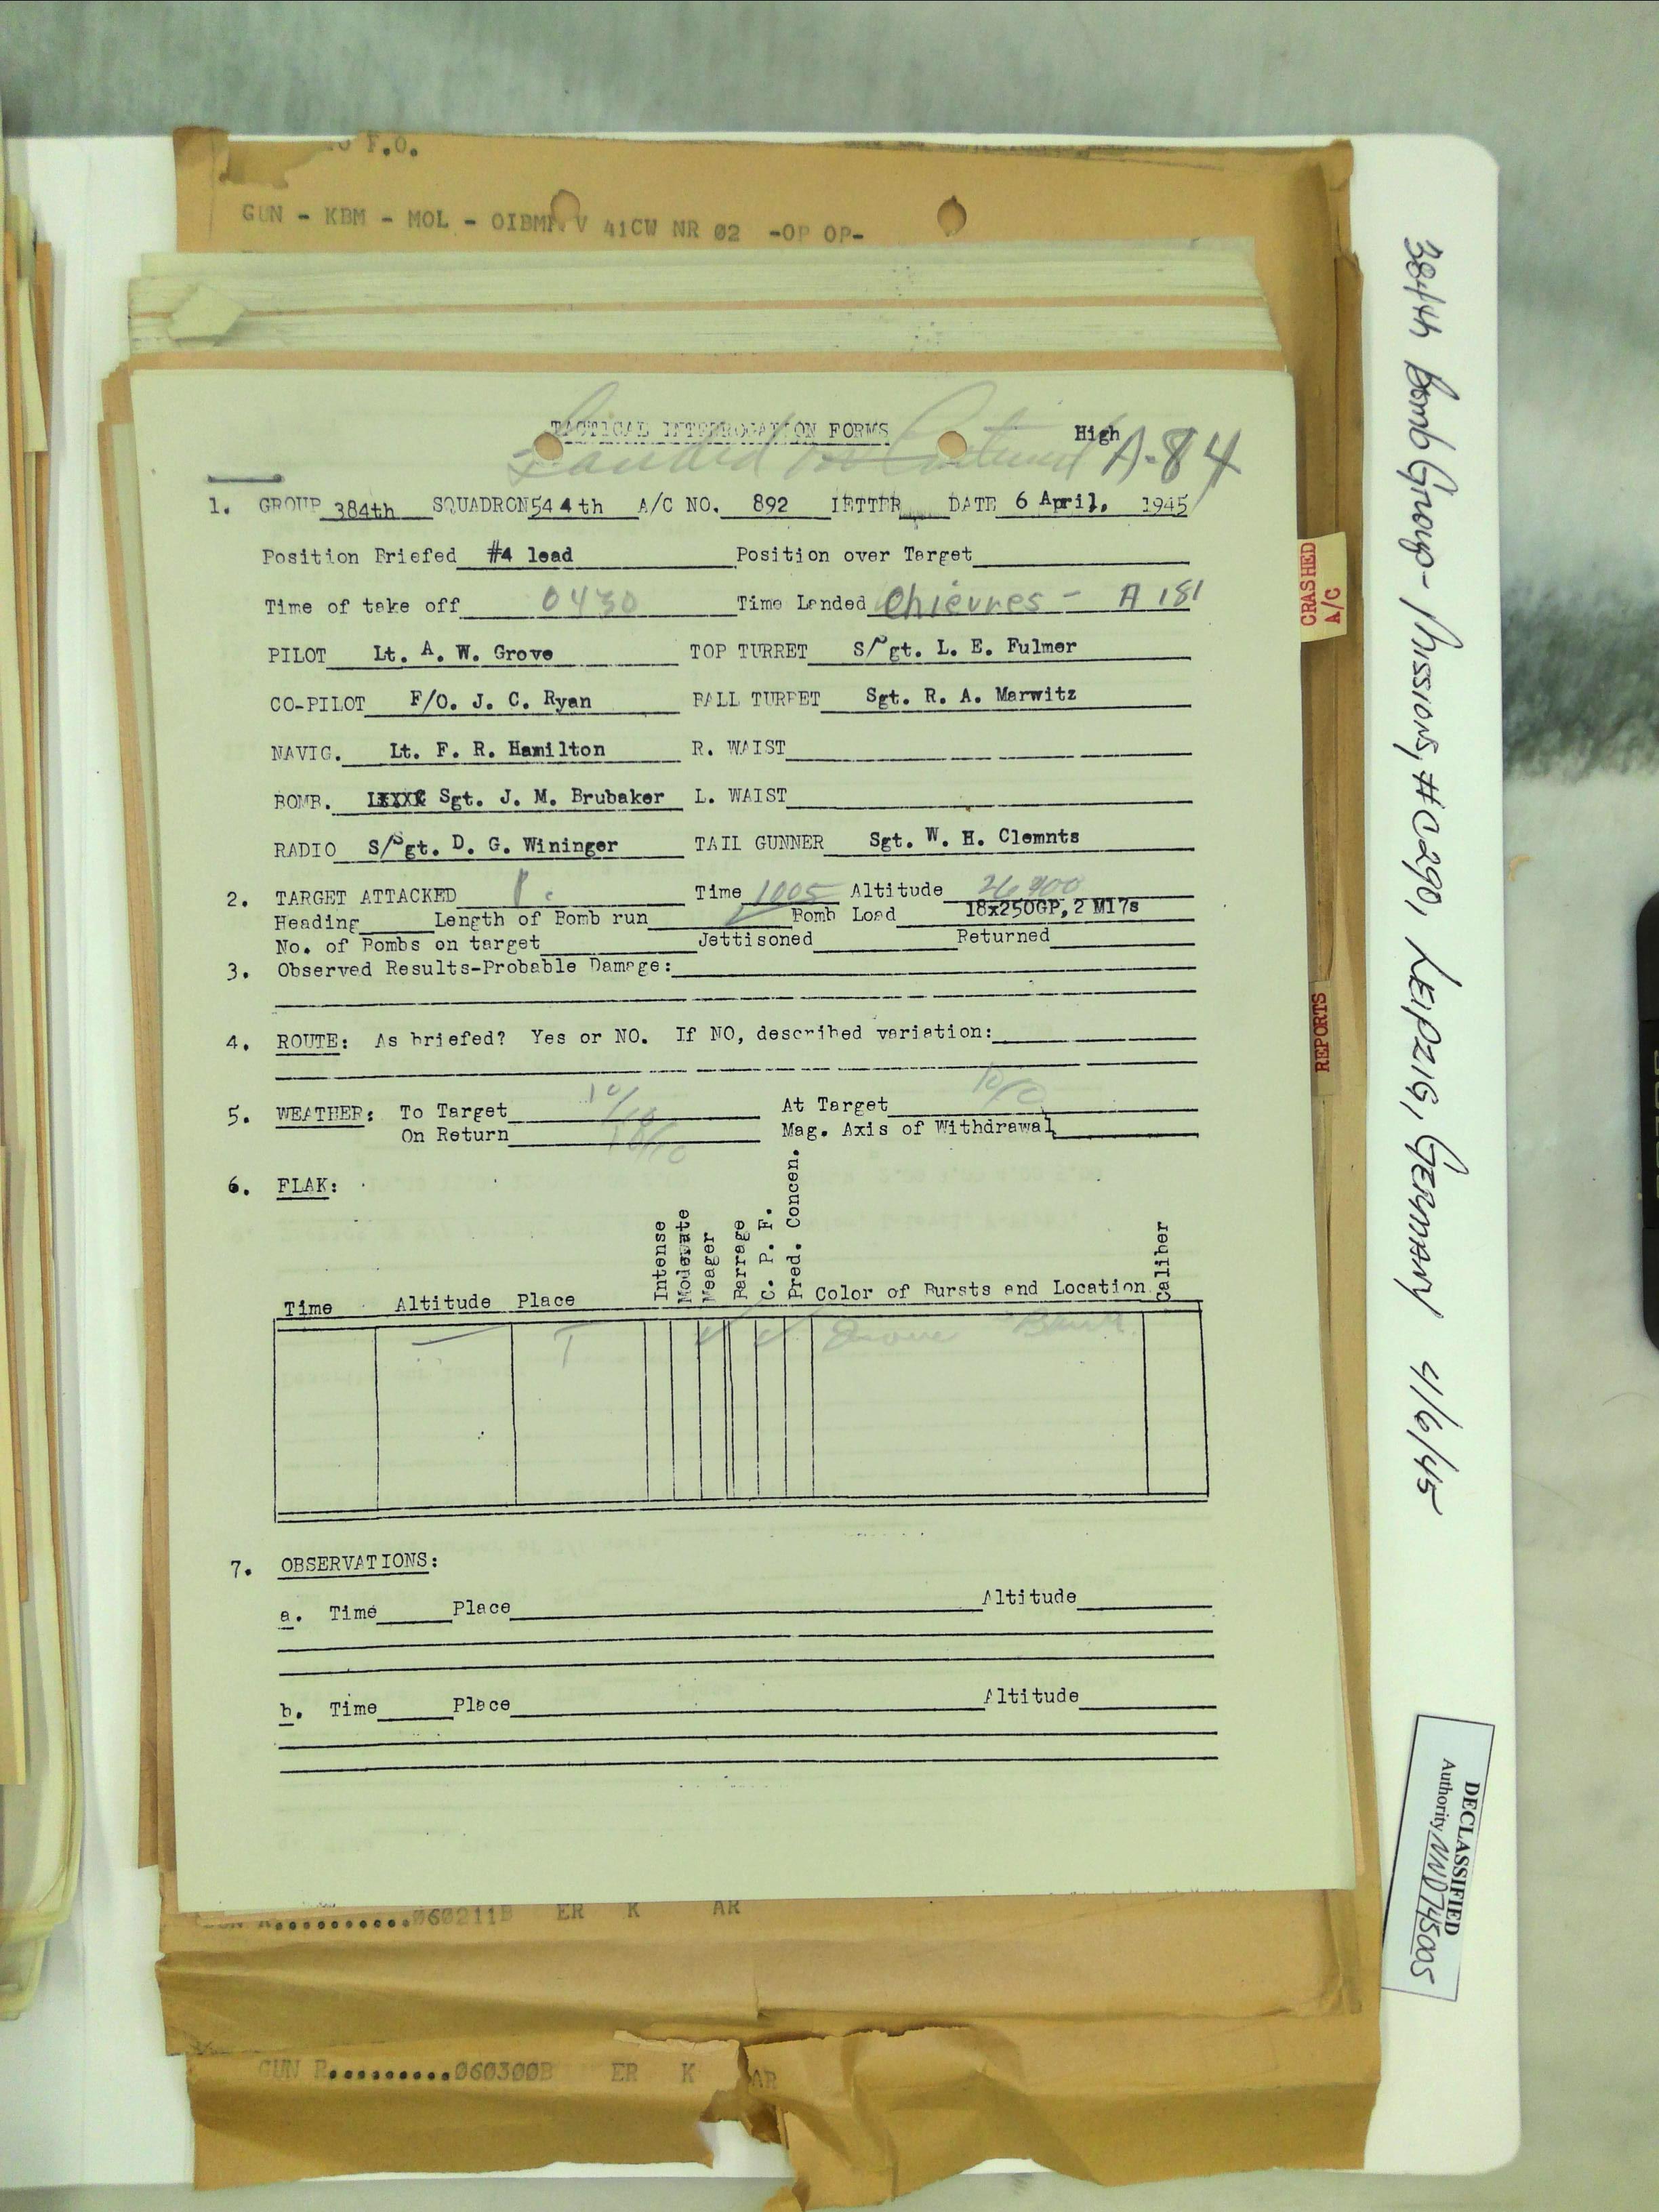 F.O.
GUN - KBM - MOL - OIBMH V 41CW NR 02 -OP OP-
TACTICAL INTERROGATION FORMS
High
Landed on Continent A-84
1. GROUP 384th SQUADRON 544th A/C NO. 892 LETTER DATE 6 April, 1945
Position Briefed #4 lead Position over Target
Time of take off 0430 Time Landed Chievres - A 181
PILOT Lt. A. W. Grove TOP TURRET S/Sgt. L. E. Fulmer
CO-PILOT F/O. J. C. Ryan BALL TURRET Sgt. R. A. Marwitz
NAVIG. Lt. F. R. Hamilton R. WAIST
BOMB. Sgt. J. M. Brubaker L. WAIST
RADIO S/Sgt. D. G. Wininger TAIL GUNNER Sgt. W. H. Clemnts
2. TARGET ATTACKED Time 1005 Altitude 26900
Heading Length of Bomb run Bomb Load 18x250GP, 2 M17s
No. of Bombs on target Jettisoned Returned
3. Observed Results-Probable Damage:
4. ROUTE: As briefed? Yes or NO. If NO, described variation:
5. WEATHER: To Target 10/10 At Target 10/10
On Return 10/10 Mag. Axis of Withdrawal
6. FLAK:
Time Altitude Place Intense Moderate Meager Barrage C. P. F. Pred. Concen. Color of Bursts and Location Caliber
T ✓ ✓
7. OBSERVATIONS:
a. Time Place Altitude
b. Time Place Altitude
GUN R..........060211B ER K AR
GUN R..........060300B ER K AR
CRASHED
A/C
REPORTS
384th Bomb Group - Missions, #0290, LEIPZIG, GERMANY 4/6/45
DECLASSIFIED
Authority NND745005